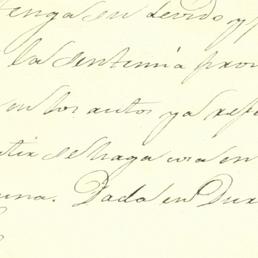 tenga en devido y p
la sentencia pron
en los autos ya refe
se haga cosa en
una. Dada en Dur